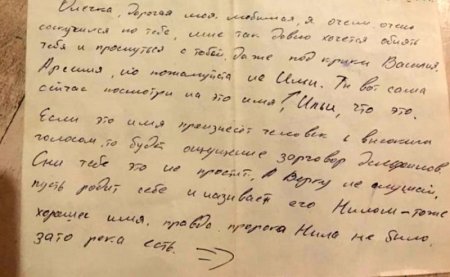 Олечка, дорогая моя, любимая, я очень, очень
соскучился по тебе, мне так давно хочется обнять
тебя и проснуться с тобой, даже под крики Василия,
но пожалуйста не Или. Ты вот сама
сейчас посмотри на это имя! Или, что это.
Если это имя произнесёт человек с высоким
голосом, то будет ощущение заговор дельфинов.
Они тебе это не простит. А Верку не слушай,
пусть родит себе и называет его Нилом – тоже
хорошее имя. правда пророка Нила не было.
зато река есть. =>